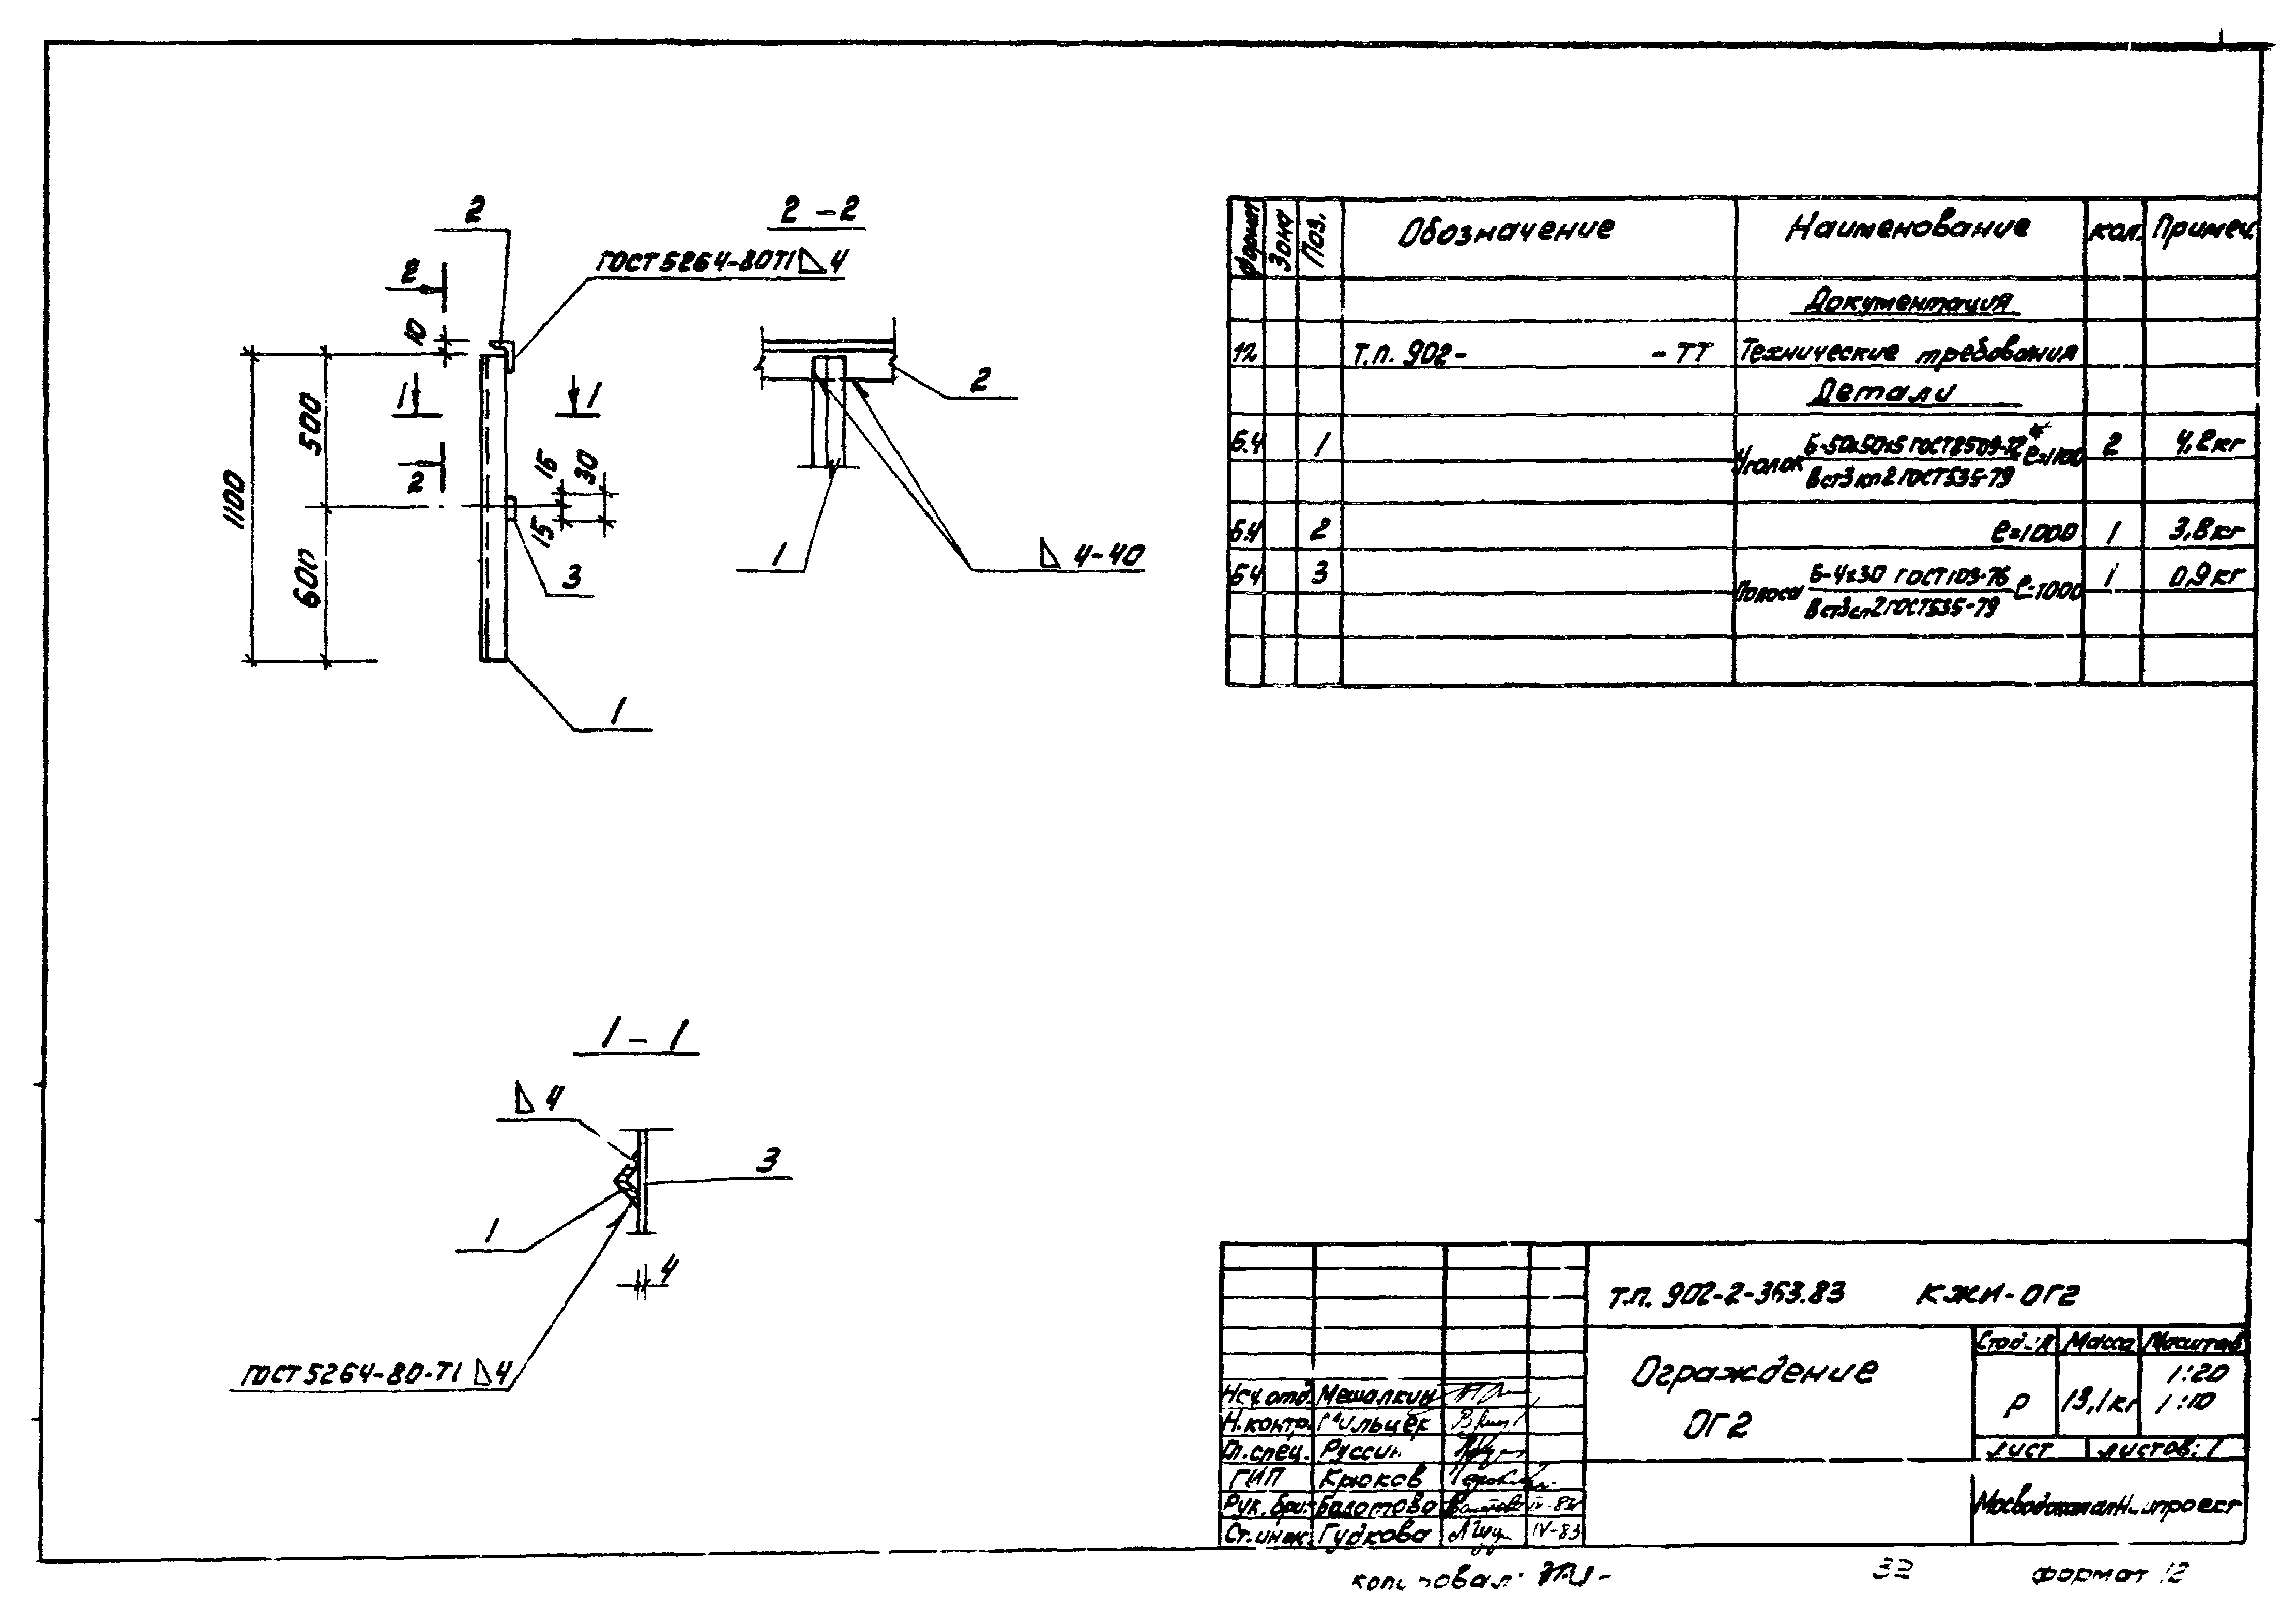 2
2 - 2
ГОСТ 5264-80Т1 4
2
10
1 1
500
2
15
30
15
1100
600
3
1
2
1
4-40
1 - 1
4
3
1
4
ГОСТ 5264-80-Т1 4
Формат Зона Поз. Обозначение Наименование кол. Примеч.
Документация
12 Т.П. 902- - ТТ Технические требования
Детали
Б.4 1 Уголок Б-50х50х5 ГОСТ 8509-72* ℓ=1100 2 4,2кг
Вст3кп2 ГОСТ535-79
Б4 2 ℓ=1000 1 3,8кг
Б4 3 Полоса Б-4х30 ГОСТ103-76 ℓ=1000 1 0,9кг
Вст3сп2 ГОСТ535-79
Т.П. 902-2-363.83 КЖИ-ОГ2
Ограждение
ОГ2
Стадия Масса Масштаб
Р 13,1кг 1:20
1:10
лист листов: 1
Нач. отд. Мешалкин
Н.контр. Мильцер
Гл.спец. Руссин
ГИП Крюков
Рук. бриг. Болотова IV-83
Ст.инж. Гудкова IV-83
МосводоканалНИИпроект
копировал:
32
формат 12